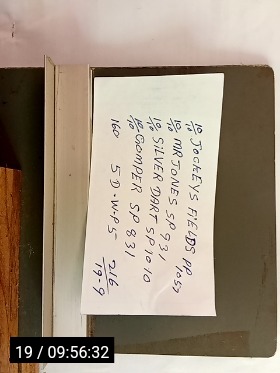 10/10 JOCKEYS FIELDS PP 1057
10/10 MR JONES SP 931
10/10 SILVER DART SP 1010
10/10 GOMPER SP 831
160 5 D-W-P5 216
19-9
19 / 09:56:32